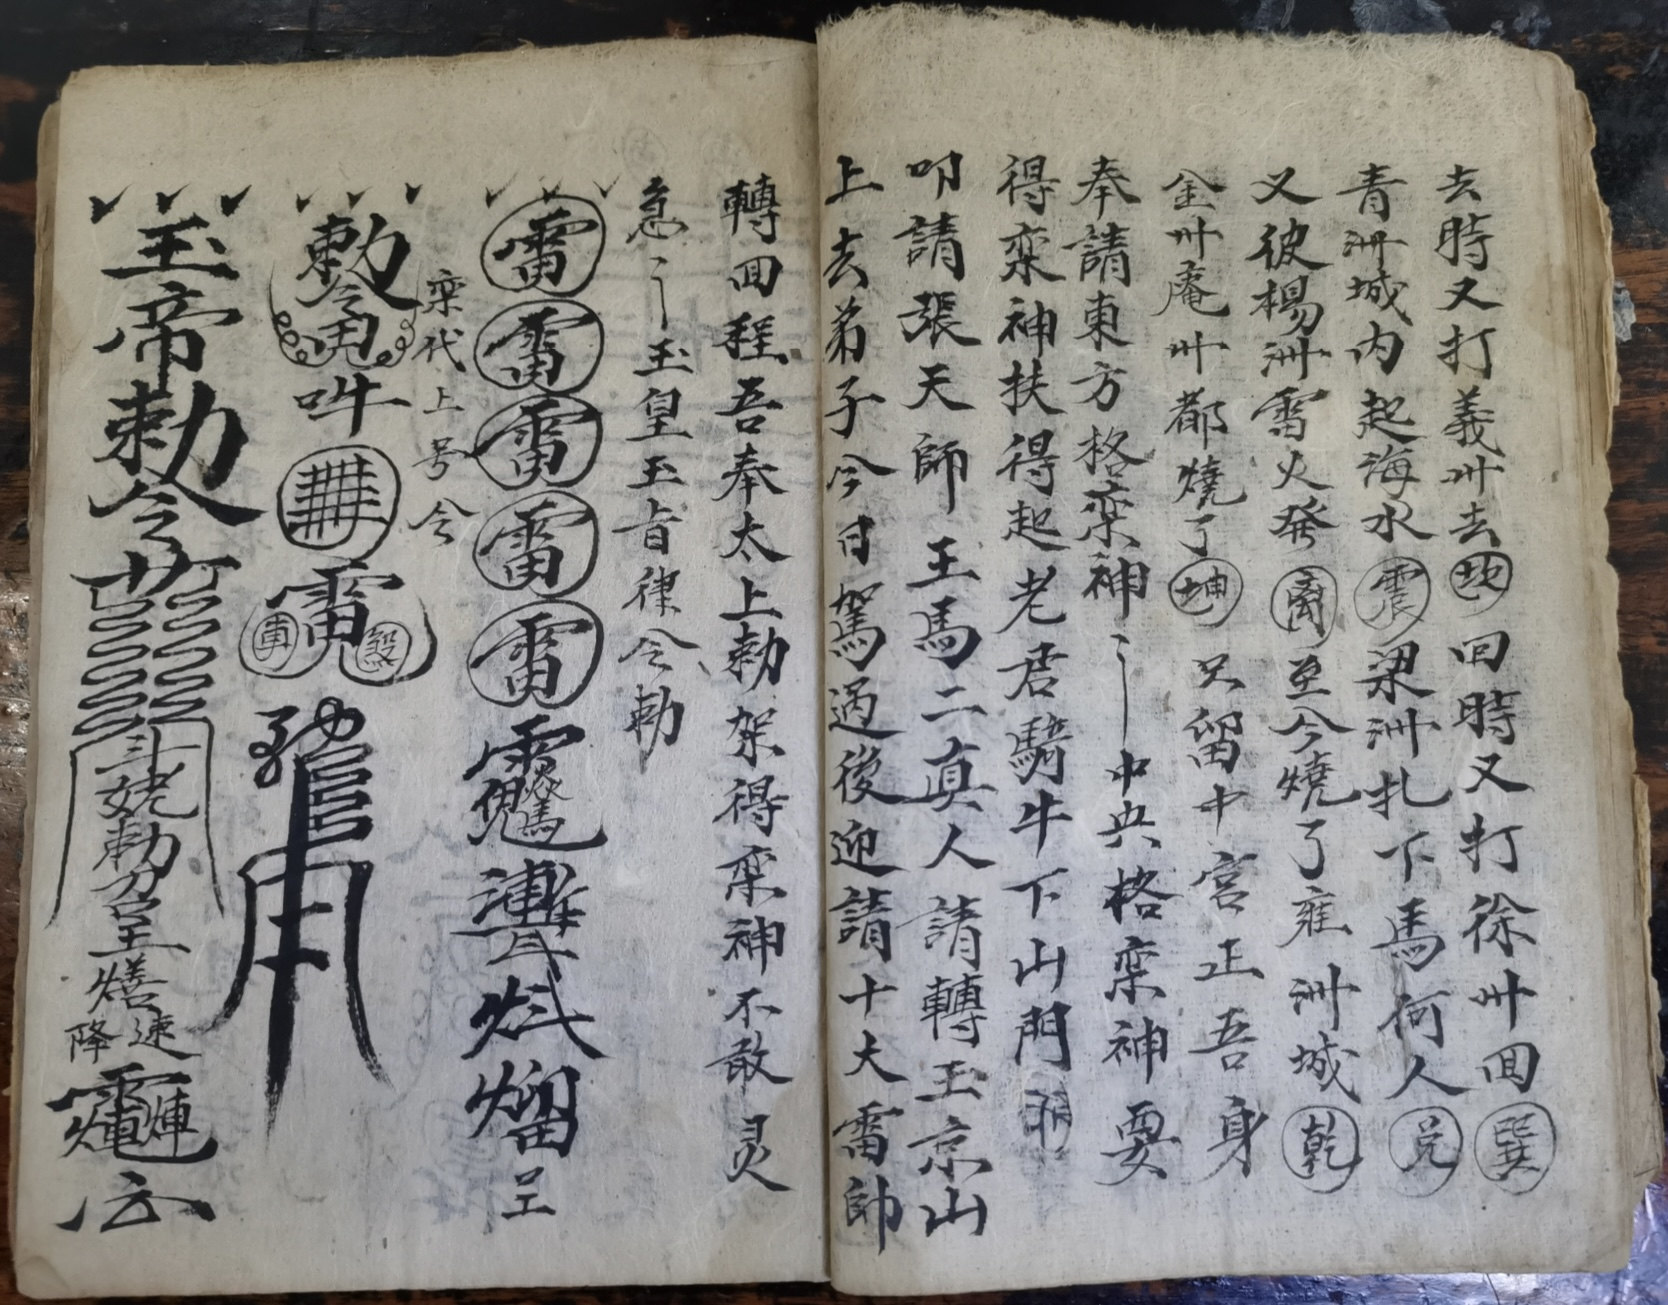 去時又打義卅去坎回時又打徐卅回巽
青洲城內起海水震梁洲扎下馬何人兌
又彼楊洲雷火發离至今燒了雍洲城乾
金卅庵卅都燒了坤只留中宮正吾身
奉請東方格栾神〻中央格栾神要
得栾神扶得起老君騎牛下山門
叩請張天師王馬二真人請轉玉京山
上去弟子今日駕過後迎請十大雷帥
轉回程吾奉太上勅架得栾神不敢灵
急〻玉皇玉旨律令勅
雷雷雷雷雷
栾代上号令
勅令
玉帝勅令斗姥勅速降